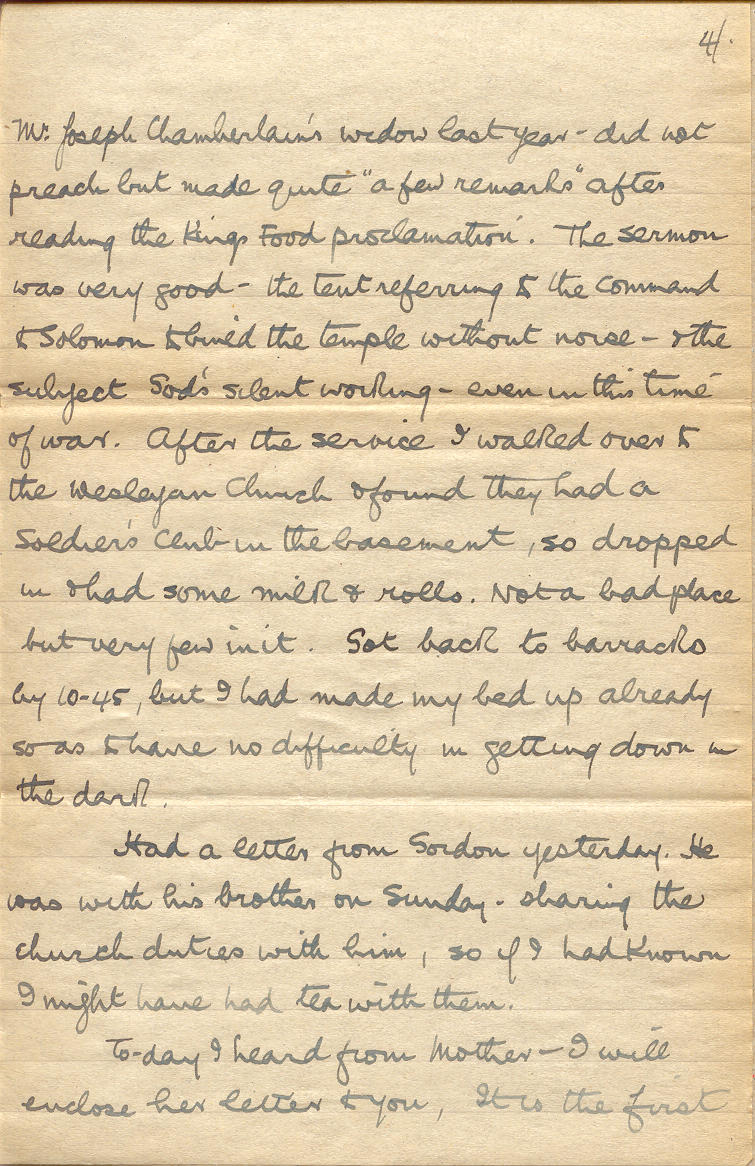 4/.
Mr. Joseph Chamberlain's widow last year - did not
preach but made quite "a few remarks" after
reading the Kings Food proclamation. The sermon
was very good - the text referring to the command
to Solomon to build the temple without noise - & the
subject God's silent working - even in this time
of war. After the service I walked over to
the Wesleyan Church & found they had a
Soldier's Club in the basement, so dropped
in & had some milk & rolls. Not a bad place
but very few in it. Got back to barracks
by 10-45, but I had made my bed up already
so as to have no difficulty in getting down in
the dark.
Had a letter from Gordon yesterday. He
was with his brother on Sunday - sharing the
church duties with him, so if I had known
I might have had tea with them.
To-day I heard from Mother - I will
enclose her letter to you, It is the first